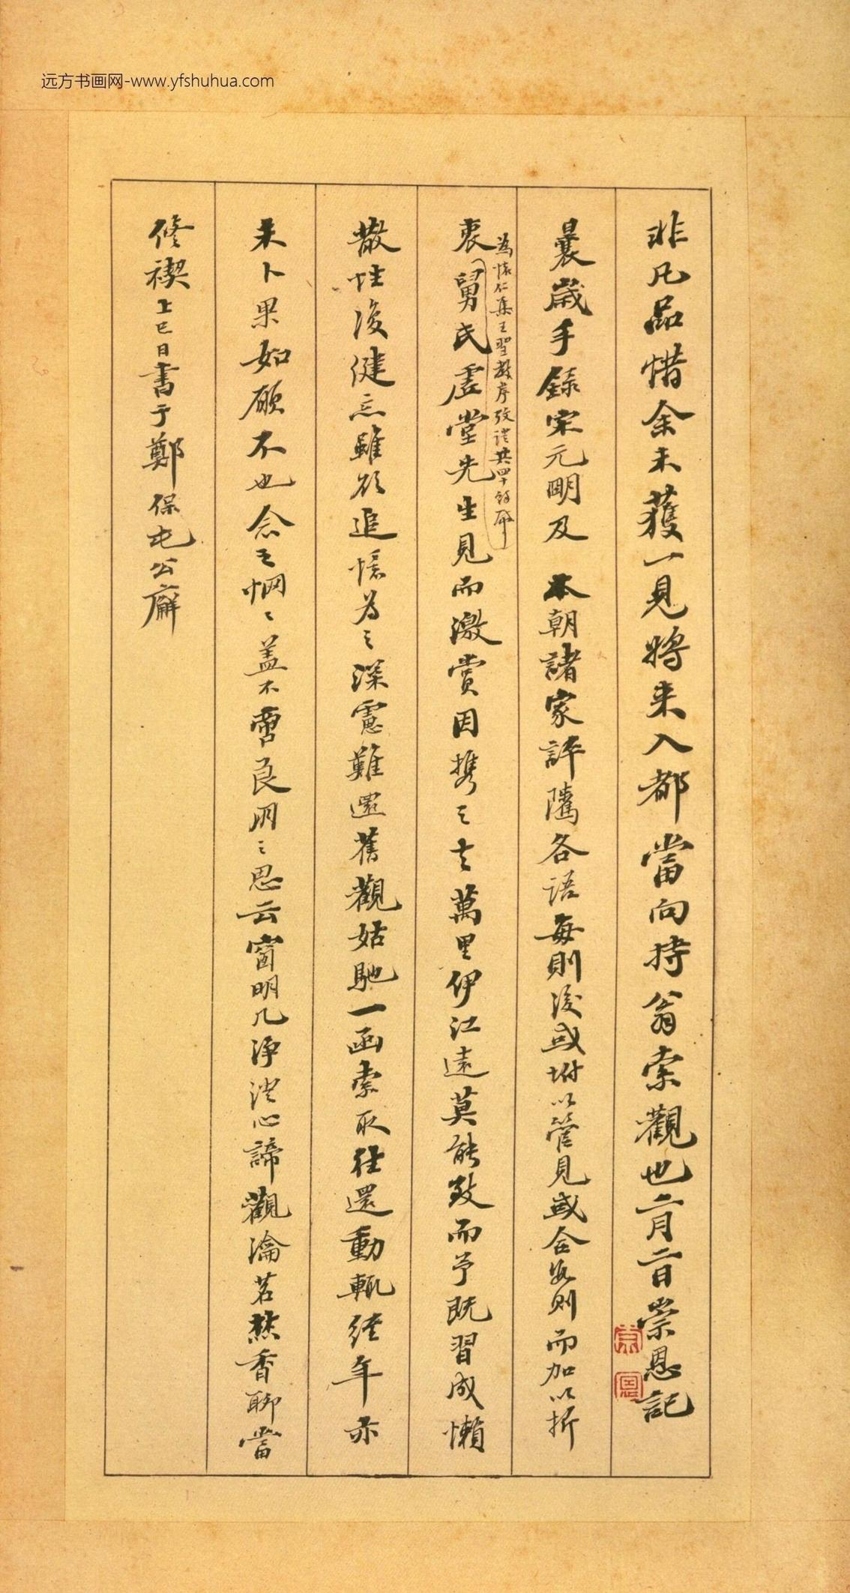 远方书画网-www.yfshuhua.com
非凡品惜余未獲一見將来入都當向持翁索觀也二月二日崇恩記
曩歲手錄宋元明及本朝諸家評隲各語每則後或坿以管見或合數則而加以折
衷舅氏虛堂先生見而激賞因携之去萬里伊江遠莫能致而予既習成懶
為懷仁集王聖教序攷證共四
散性復健忘雖欲追憶為之深慮難還舊觀姑馳一函索取往還動輒經年亦
未卜果如願不也念之惘〻蓋不啻良朋之思云窗明几淨澄心諦觀瀹茗焚香聊當
修禊上巳日書于鄭保屯公廨